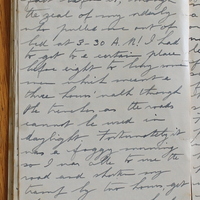 the zeal of my orderly
who pulled me out of
bed at 3-30 A.M! I had
to get to a certain place
before eight to-day
which meant a
three hours walk though
the trenches as the roads
cannot be used in
daylight. Fortunately it
was a foggy morning
so I was able to use the
road and shorten my
tramp by two hours. get